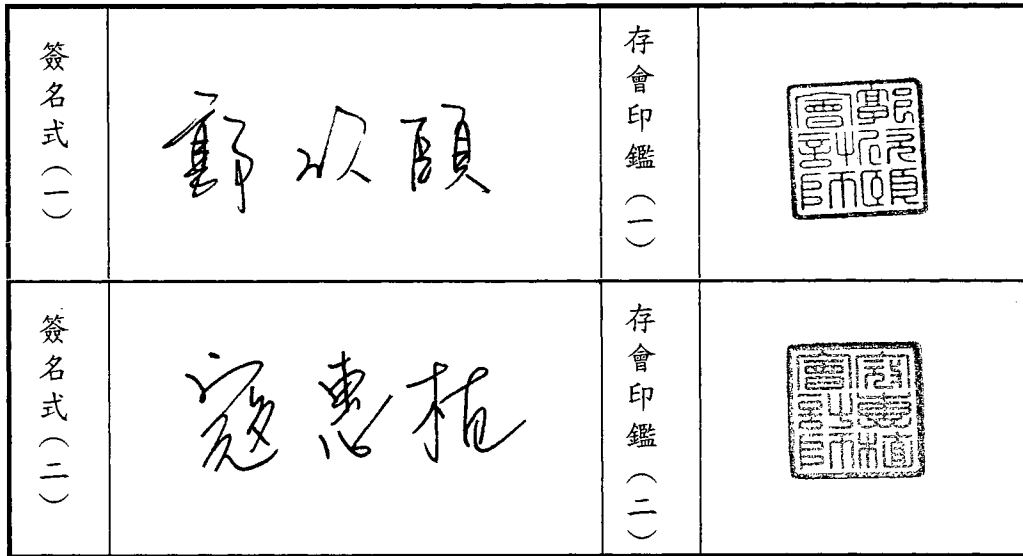 簽名式（一）
郭欣頤
存會印鑑（一）
郭欣頤會計師
簽名式（二）
寇惠植
存會印鑑（二）
寇惠植會計師